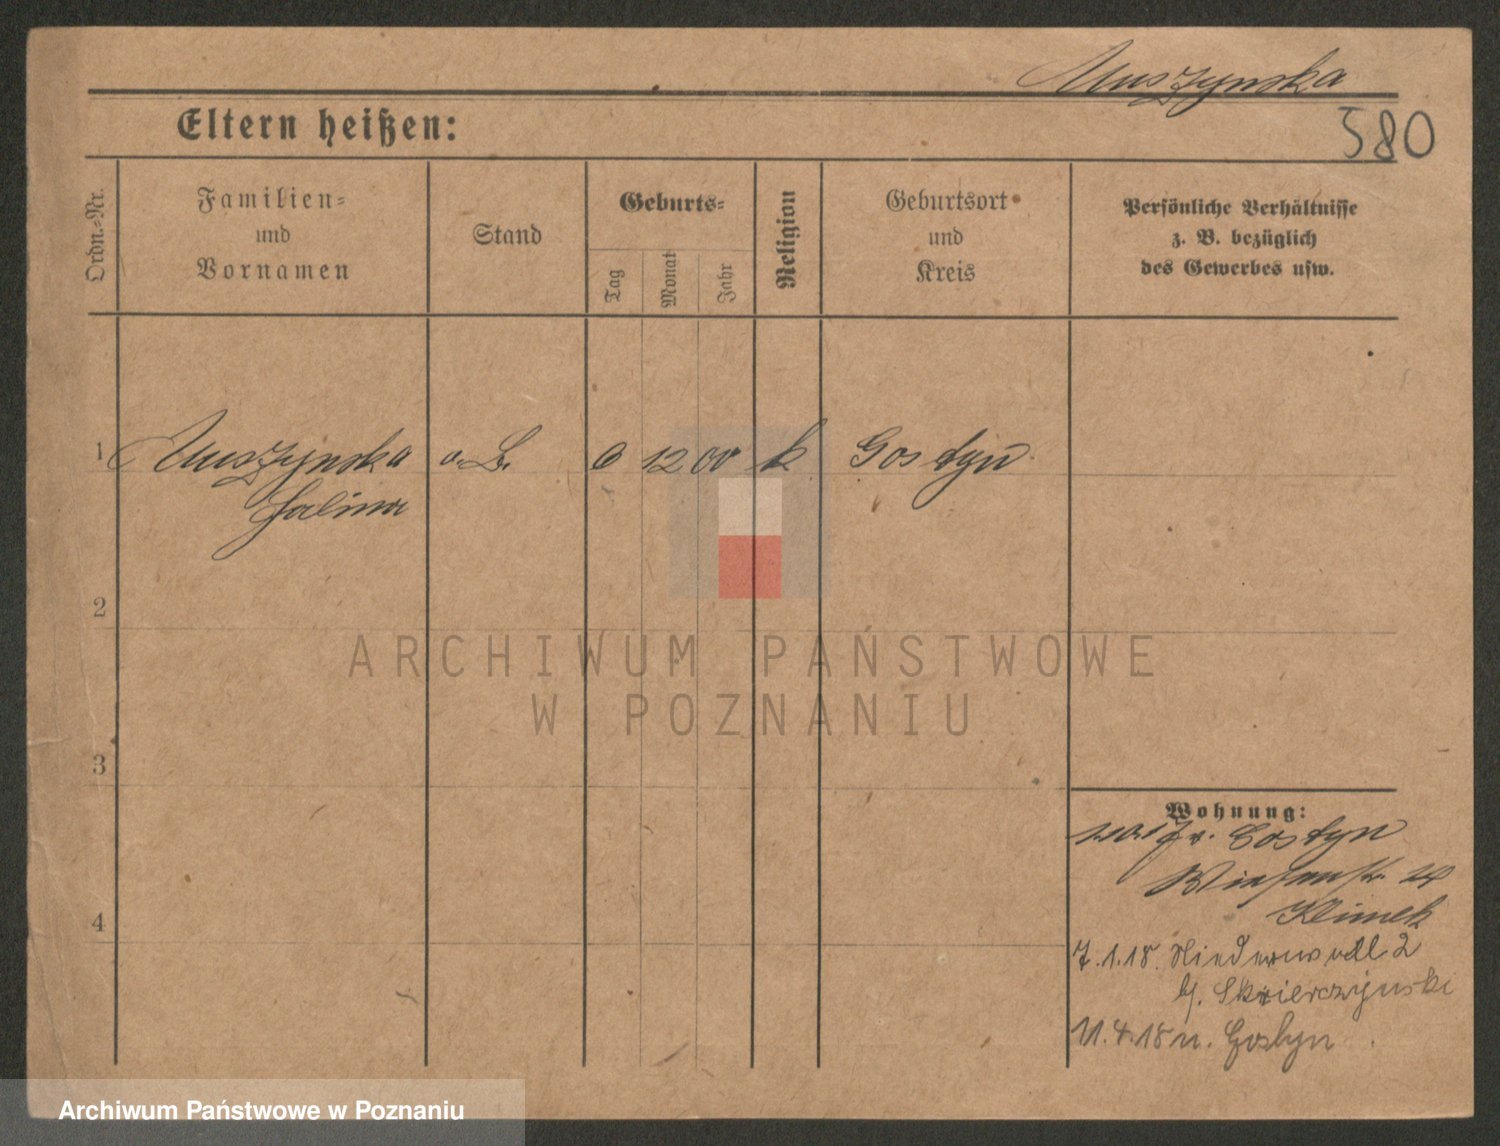 Muszynska
580
Eltern heißen:
Ordn.-Nr.
Familien-
und
Vornamen
Stand
Geburts-
Tag
Monat
Jahr
Religion
Geburtsort
und
Kreis
Persönliche Verhältnisse
z. B. bezüglich
des Gewerbes usw.
1 Muszynska o. B. 6 12 00 k Gostyn
Halina
2
3
4
Wohnung:
v. Gostyn
Wiesenstr. 24
Klimek
7.1.18. Niederwall 2
b. Skrierczynski
11.4.18 n. Gostyn
ARCHIWUM PAŃSTWOWE
W POZNANIU
Archiwum Państwowe w Poznaniu